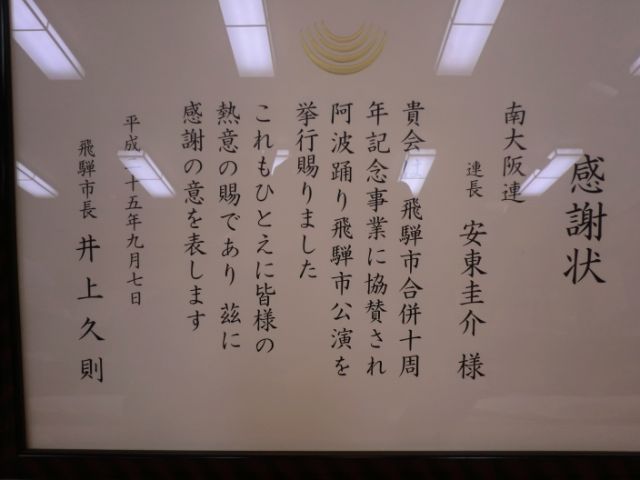 感謝状
南大阪連
連長 安東圭介 様
貴会 飛騨市合併十周
年記念事業に協賛され
阿波踊り飛騨市公演を
挙行賜りました
これもひとえに皆様の
熱意の賜であり 茲に
感謝の意を表します
平成 十五年九月七日
飛騨市長 井上久則